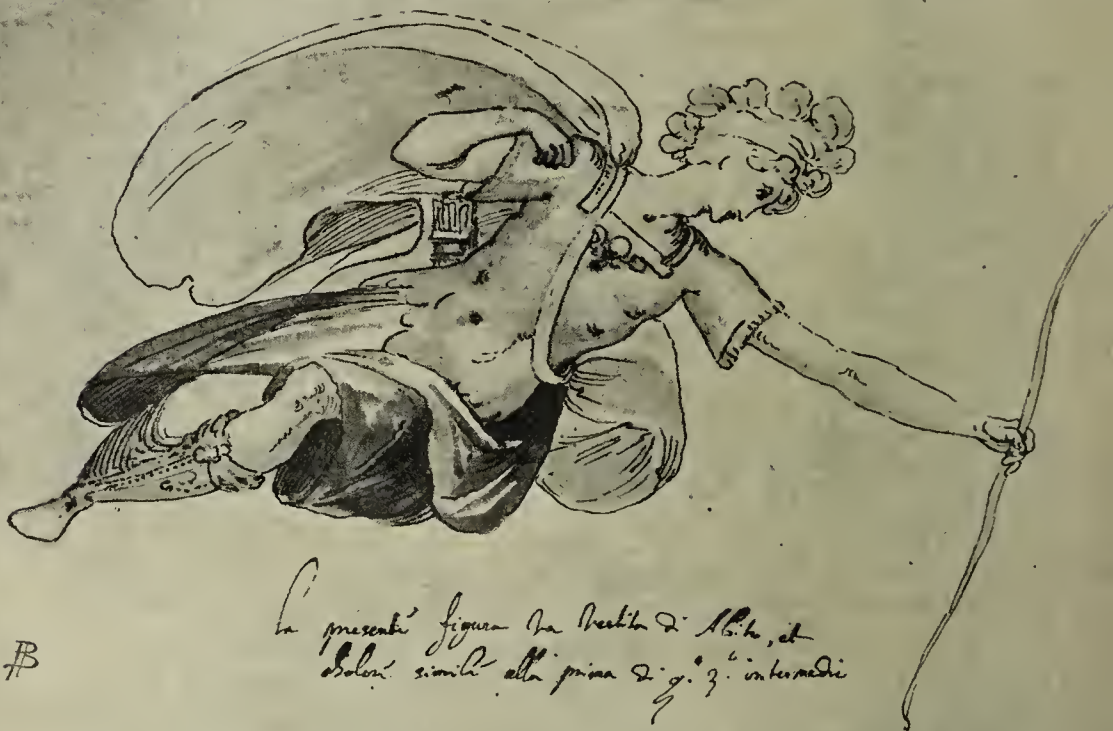 la presente figura va vestita di Abito, et
colori simili alla prima di q.º 3.º intermedi
PB